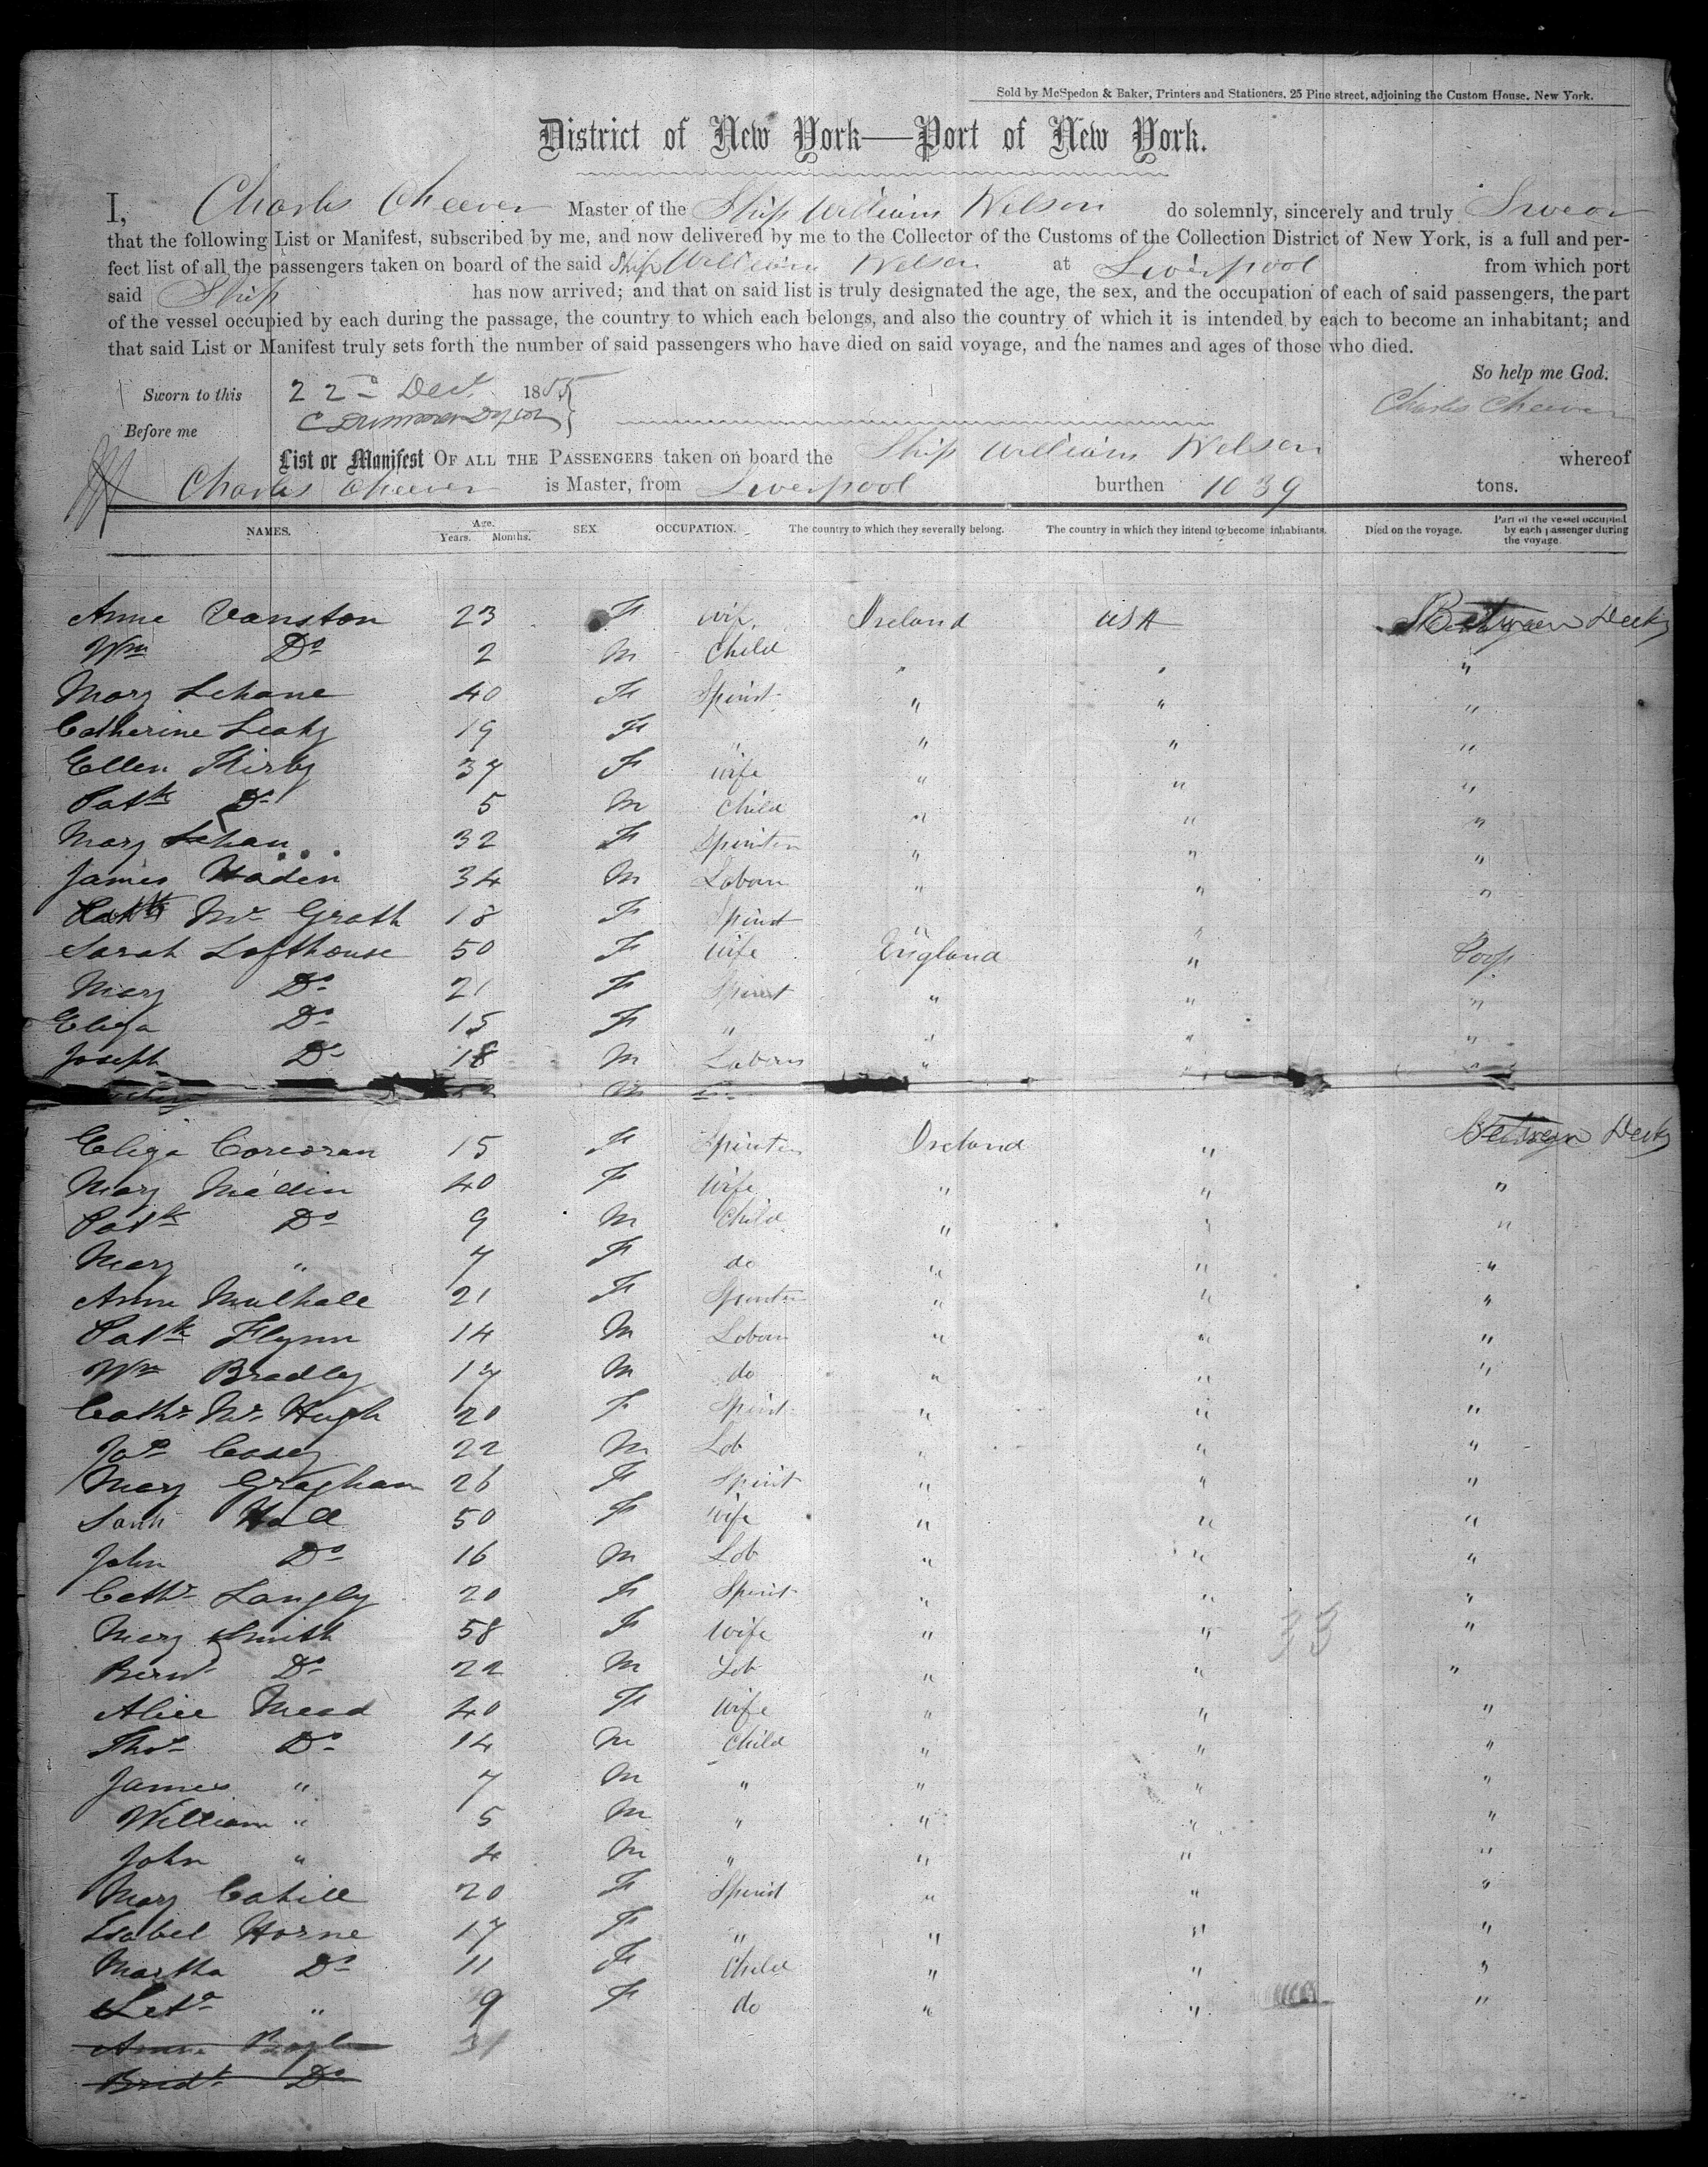 Sold by McSpedon & Baker, Printers and Stationers, 25 Pine street, adjoining the Custom House, New York.
District of New York—Port of New York.
I, Charles Cheever Master of the Ship William Nelson do solemnly, sincerely and truly Swear
that the following List or Manifest, subscribed by me, and now delivered by me to the Collector of the Customs of the Collection District of New York, is a full and per-
fect list of all the passengers taken on board of the said Ship William Nelson at Liverpool from which port
said Ship has now arrived; and that on said list is truly designated the age, the sex, and the occupation of each of said passengers, the part
of the vessel occupied by each during the passage, the country to which each belongs, and also the country of which it is intended by each to become an inhabitant; and
that said List or Manifest truly sets forth the number of said passengers who have died on said voyage, and the names and ages of those who died.
So help me God.
Sworn to this 22d Dec. 1855
Charles Cheever
Before me
List or Manifest OF ALL THE PASSENGERS taken on board the Ship William Nelson whereof
Charles Cheever is Master, from Liverpool burthen 1039 tons.
NAMES. Age. Years. Months. SEX. OCCUPATION. The country to which they severally belong. The country in which they intend to become inhabitants. Died on the voyage. Part of the vessel occupied by each passenger during the voyage.
Anne Vanston 23 F wife Ireland USA Between Decks
Wm Do 2 M Child " " "
Mary Lehane 40 F Spinst " " "
Catherine Leahy 19 F " " " "
Ellen Kirby 37 F wife " " "
Patk Do 5 M Child " " "
Mary Lehan 32 F Spinster " " "
James Haden 34 M Labour " " "
Mc Grath 18 F Spinst " "
Sarah Lofthouse 50 F wife England " Poop
Mary Do 21 F Spinst " " "
Eliza Do 15 F " " " "
Joseph Do 18 M Labour " " "
M
Eliza Corcoran 15 F Spinster Ireland " Between Decks
Mary Madin 40 F wife " " "
Patk Do 9 M Child " " "
Mary " 7 F do " " "
Anne Mulhall 21 F Spinster " " "
Patk Flynn 14 M Labour " " "
Wm Bradley 17 M do " " "
Cathe Mc Hugh 20 F Spinst " " "
Jas Casey 22 M Lab " " "
Mary Gragham 26 F Spinst " " "
Hall 50 F wife " " "
John Do 16 M Lab " " "
Cathe Langly 20 F Spinst " " "
Mary Smith 58 F wife " " "
33
Bernd Do 22 M Lab " " "
Alice Mead 40 F wife " " "
Thos Do 14 M Child " " "
James " 7 M " " " "
William " 5 M " " " "
John " 4 M " " " "
Mary Cahill 20 F Spinst " " "
Isabel Horne 17 F " " " "
Martha Do 11 F Child " " "
Leta " 9 F do " " "
Anne 31
Bridt Do